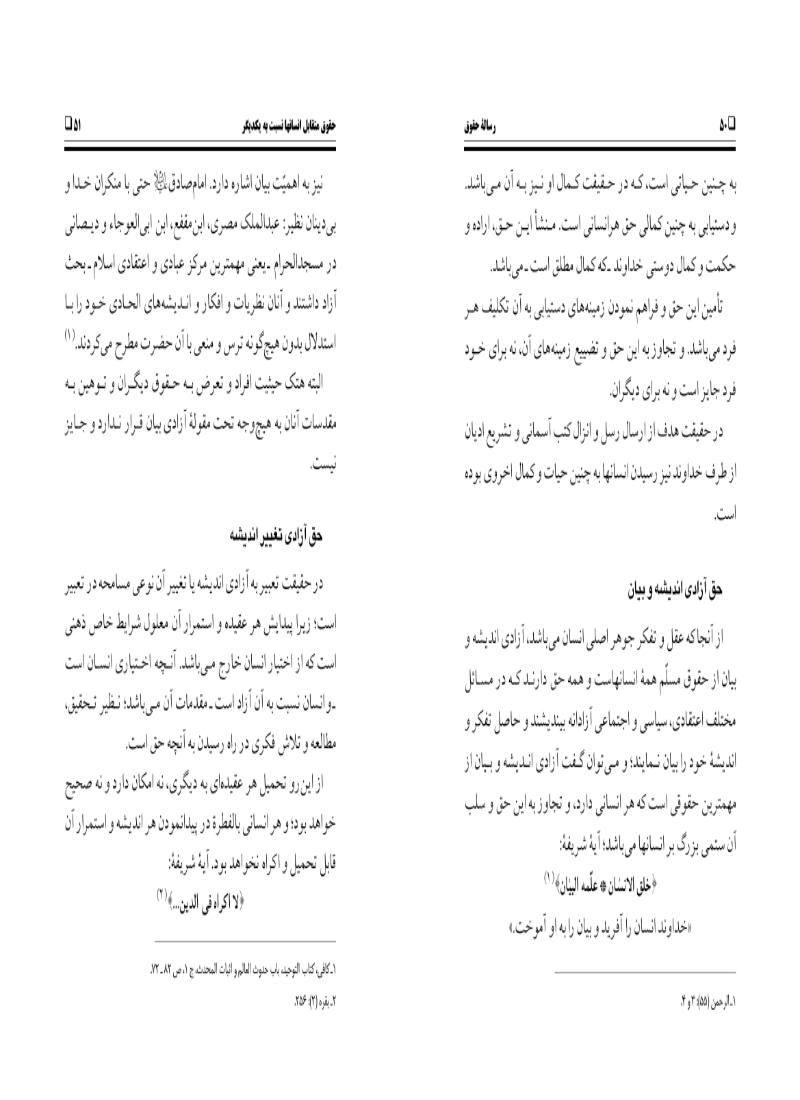 ❏ ۵۰ رسالهٔ حقوق
به چنین حیاتی است، که در حقیقت کمال او نیز به آن می‌باشد.
و دستیابی به چنین کمالی حق هرانسانی است. منشأ این حق، اراده و
حکمت و کمال دوستی خداوند ـ که کمال مطلق است ـ می‌باشد.
تأمین این حق و فراهم نمودن زمینه‌های دستیابی به آن تکلیف هر
فرد می‌باشد. و تجاوز به این حق و تضییع زمینه‌های آن، نه برای خود
فرد جایز است و نه برای دیگران.
در حقیقت هدف از ارسال رسل و انزال کتب آسمانی و تشریع ادیان
از طرف خداوند نیز رسیدن انسانها به چنین حیات و کمال اخروی بوده
است.
حق آزادی اندیشه و بیان
از آنجا که عقل و تفکر جوهر اصلی انسان می‌باشد، آزادی اندیشه و
بیان از حقوق مسلّم همهٔ انسانهاست و همه حق دارند که در مسائل
مختلف اعتقادی، سیاسی و اجتماعی آزادانه بیندیشند و حاصل تفکر و
اندیشهٔ خود را بیان نمایند؛ و می‌توان گفت آزادی اندیشه و بیان از
مهمترین حقوقی است که هر انسانی دارد، و تجاوز به این حق و سلب
آن ستمی بزرگ بر انسانها می‌باشد؛ آیهٔ شریفهٔ:
﴿خلق الانسان * علّمه البیان﴾(۱)
«خداوند انسان را آفرید و بیان را به او آموخت.»
۱ـ الرحمن (۵۵): ۳ و ۴.
حقوق متقابل انسانها نسبت به یکدیگر ۵۱ ❏
نیز به اهمیّت بیان اشاره دارد. امام‌صادق(ع) حتی با منکران خدا و
بی‌دینان نظیر: عبدالملک مصری، ابن‌مقفع، ابن ابی‌العوجاء و دیصانی
در مسجدالحرام ـ یعنی مهمترین مرکز عبادی و اعتقادی اسلام ـ بحث
آزاد داشتند و آنان نظریات و افکار و اندیشه‌های الحادی خود را با
استدلال بدون هیچ‌گونه ترس و منعی با آن حضرت مطرح می‌کردند.(۱)
البته هتک حیثیت افراد و تعرض به حقوق دیگران و توهین به
مقدسات آنان به هیچ‌وجه تحت مقولهٔ آزادی بیان قرار ندارد و جایز
نیست.
حق آزادی تغییر اندیشه
در حقیقت تعبیر به آزادی اندیشه یا تغییر آن نوعی مسامحه در تعبیر
است؛ زیرا پیدایش هر عقیده و استمرار آن معلول شرایط خاص ذهنی
است که از اختیار انسان خارج می‌باشد. آنچه اختیاری انسان است
ـ و انسان نسبت به آن آزاد است ـ مقدمات آن می‌باشد؛ نظیر تحقیق،
مطالعه و تلاش فکری در راه رسیدن به آنچه حق است.
از این‌رو تحمیل هر عقیده‌ای به دیگری، نه امکان دارد و نه صحیح
خواهد بود؛ و هر انسانی بالفطرة در پیدانمودن هر اندیشه و استمرار آن
قابل تحمیل و اکراه نخواهد بود. آیهٔ شریفهٔ:
﴿لا اکراه فی الدین...﴾(۲)
۱ـ کافی، کتاب التوحید، باب حدوث العالم و اثبات المحدث، ج ۱، ص ۸۲ ـ ۷۲.
۲ـ بقره (۲): ۲۵۶.